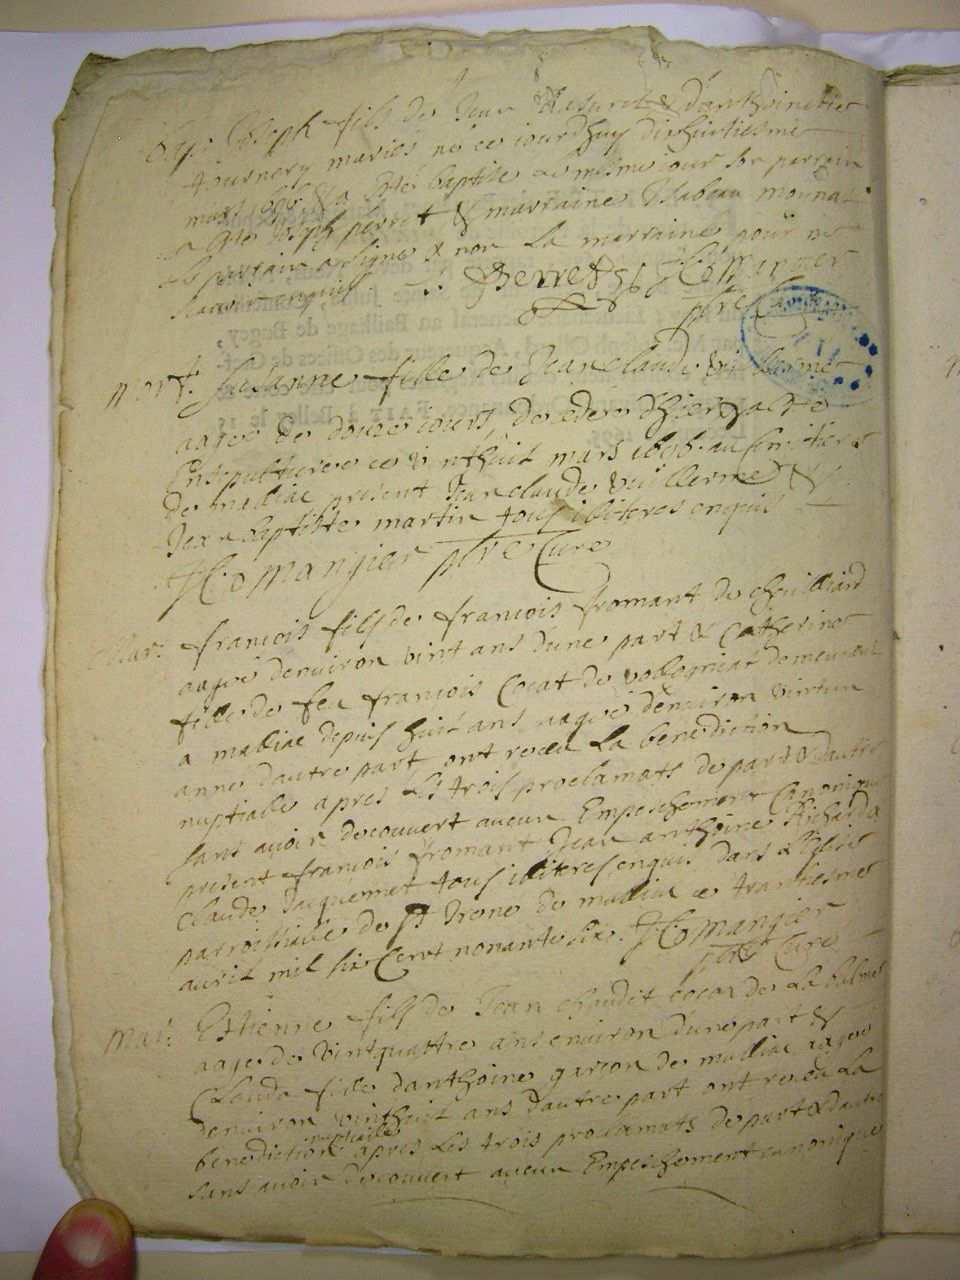 Bap: Joseph fils de Jean & danthoinette
tournery mariés né ce jourdhuy dixhuitiesme
mars 1696 & a esté baptisé le mesme jour son parrain
a esté Joseph perret & marraine Isabeau
le parrain a signé & non la marraine pour ne
scavoir enquis Perret Comangier
pbre
mort. Susanne fille de Jean claude vuillerme
aagee de douze jours, decedee d'hier a esté
Ensepulturee ce vinthuit mars 1696. au simitiere
de maillac present Jean claude vuillerme &
Jean baptiste martin tous illiteres enquis
Comangier pbre Curé
Mar: francois fils de francois fromant de
aagé denviron vint ans dune part & Catherine
fille de feu francois Cocat de demeurant
a maillac depuis huit ans aagée denviron vintun
anne dautre part ont receu la benediction
nuptialle apres les trois proclamats de part & dautre
sans avoir decouvert aucun Empeschement Canonique
present francois fromant Jean anthoine Richard &
Claude Jacquemet tous illiteres enquis dans l'Eglise
parroissialle de st de maillac ce trantiesme
avril mil six Cent nonante six. Comangier
pbre Curé
Mar: Estienne fils de Jean cocat de La balme
aage de vintquattre ans environ dune part &
Clauda fille danthoine garcon de maillac aagée
denviron vinthuit ans dautre part ont receu La
nuptialle
benediction apres les trois proclamats de part & dautre
sans avoir decouvert aucun Empeschement canonique